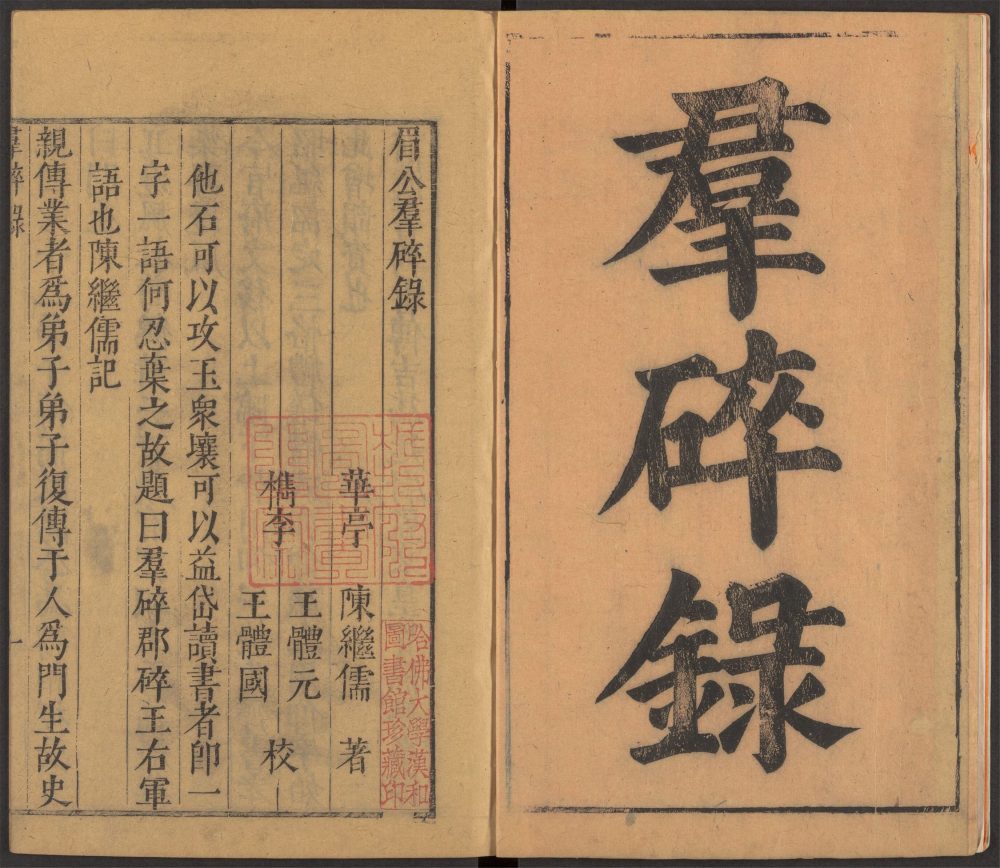 羣碎錄
眉公羣碎錄
華亭 陳繼儒 著
檇李 王體元
王體國 校
他石可以攻玉衆壤可以益岱讀書者卽一
字一語何忍棄之故題曰羣碎郡碎王右軍
語也陳繼儒記
親傳業者爲弟子弟子復傳于人爲門生故史
羣碎錄
一
哈佛大學漢和
圖書館珍藏印